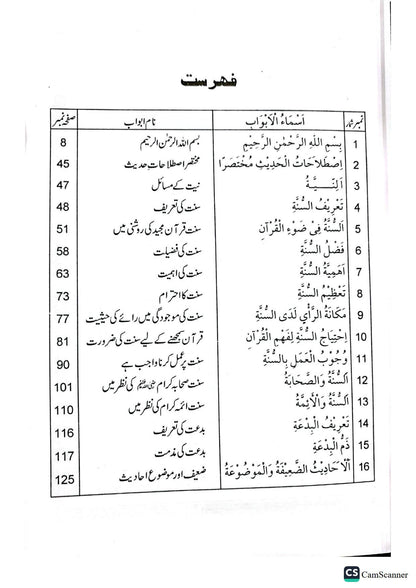 فهرست
نمبر شمار اَسْمَاءُ الْاَبْوَابِ نام ابواب صفحہ نمبر
1 بِسْمِ اللّٰهِ الرَّحْمٰنِ الرَّحِيْمِ بسم اللہ الرحمٰن الرحیم 8
2 اِصْطَلَاحَاتُ الْحَدِيْثِ مُخْتَصَرًا مختصر اصطلاحات حدیث 45
3 اَلنِّـــيَّـــةُ نیت کے مسائل 47
4 تَعْرِيْفُ السُّنَّةِ سنت کی تعریف 48
5 اَلسُّنَّةُ فِيْ ضَوْءِ الْقُرْآنِ سنت قرآن مجید کی روشنی میں 51
6 فَضْلُ السُّنَّةِ سنت کی فضیلت 58
7 اَهَمِيَّةُ السُّنَّةِ سنت کی اہمیت 63
8 تَعْظِيْمُ السُّنَّةِ سنت کا احترام 73
9 مَكَانَةُ الرَّأْيِ لَدَى السُّنَّةِ سنت کی موجودگی میں رائے کی حیثیت 77
10 اِحْتِيَاجُ السُّنَّةِ لِفَهْمِ الْقُرْآنِ قرآن سمجھنے کے لیے سنت کی ضرورت 81
11 وُجُوْبُ الْعَمَلِ بِالسُّنَّةِ سنت پر عمل کرنا واجب ہے 90
12 اَلسُّنَّةُ وَالصَّحَابَةُ سنت صحابہ کرام کی نظر میں 101
13 اَلسُّنَّةُ وَالْاَئِمَّةُ سنت ائمہ کرام کی نظر میں 110
14 تَعْرِيْفُ الْبِدْعَةِ بدعت کی تعریف 116
15 ذَمُّ الْبِدْعَةِ بدعت کی مذمت 117
16 اَلْاَحَادِيْثُ الضَّعِيْفَةُ وَالْمَوْضُوْعَةُ ضعیف اور موضوع احادیث 125
CS CamScanner